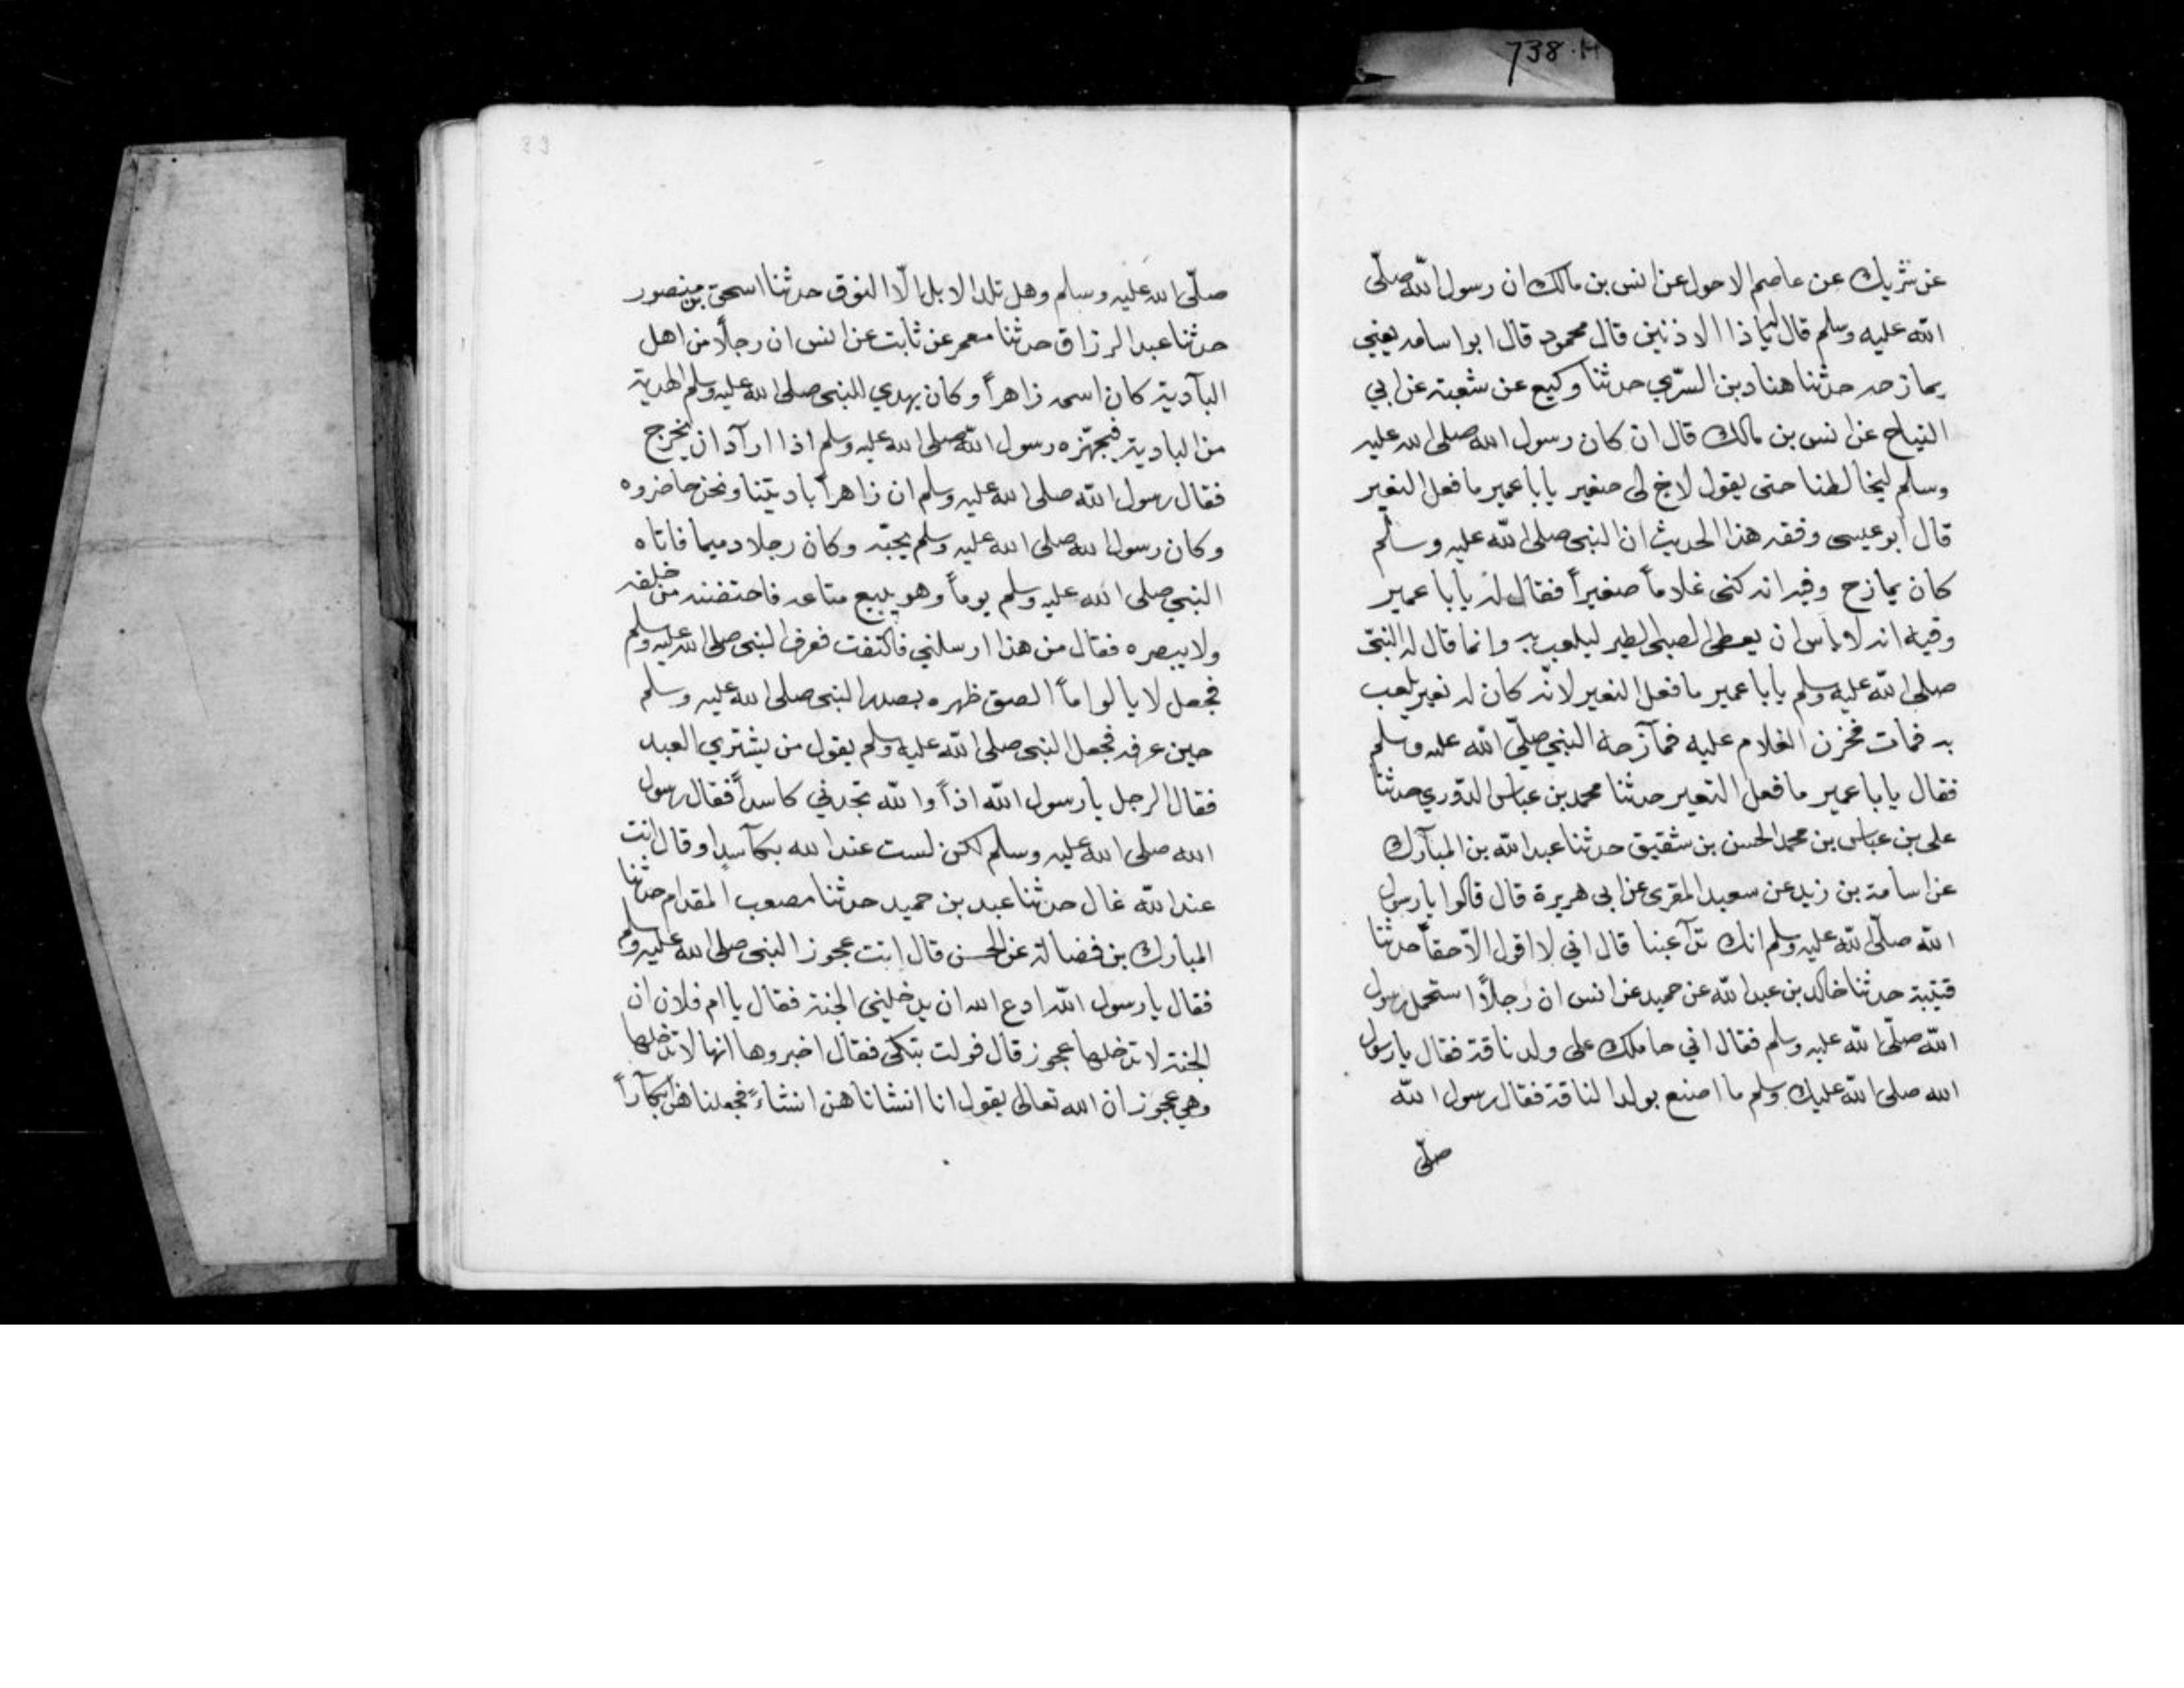 738.H
عن شريك عن عاصم الاحول عن انس بن مالك ان رسول الله صلّى
الله عليه وسلم قال له يا ذا الاذنين قال محمود قال ابو اسامه يعني
يمازحه حدثنا هناد بن السرّي حدثنا وكيع عن شعبة عن ابي
التياح عن انس بن مالك قال ان كان رسول الله صلى الله عليه
وسلم ليخالطنا حتى يقول لاخ لي صغير يا با عمير ما فعل النغير
قال ابو عيسى وفقه هذا الحديث ان النبي صلى الله عليه وسلم
كان يمازح وفيه انه كنى غلاماً صغيراً فقال له يا با عمير
وفيه انه لا باس ان يعطى الصبي الطير ليلعب به وانما قال له النبيّ
صلى الله عليه وسلم يا با عمير ما فعل النغير لانّه كان له نغير يلعب
به فمات فحزن الغلام عليه فمآزحه النبي صلّى الله عليه وسلم
فقال يا با عمير ما فعل النغير حدثنا محمد بن عباس الدوّري حدثنا
على بن عباس بن محمد الحسن بن شقيق حدثنا عبد الله بن المبآرك
عن اسامة بن زيد عن سعيد المقرى عن ابى هريرة قال قالوا يا رسول
الله صلّى الله عليه وسلم انك تدآعبنا قال اني لا اقول الاّ حقاً حدثنا
قتيبة حدثنا خالد بن عبد الله عن حميد عن انس ان رجلاً استحمل رسول
الله صلّى الله عليه وسلم فقال اني حاملك على ولد ناقة فقال يا رسول
الله صلى الله عليك وسلم ما اصنع بولد الناقة فقال رسول الله
صلّى
33
صلّى الله عليه وسلم وهل تلد الابل الّا النوق حدثنا اسحق بن منصور
حدثنا عبد الرزاق حدثنا معمر عن ثابت عن انس ان رجلاً من اهل
البآدية كان اسمه زاهراً وكان يهدي للنبي صلى الله عليه وسلم الهدية
من البادية فيجهّزه رسول الله صلى الله عليه وسلم اذا ارآد ان يخرج
فقال رسول الله صلى الله عليه وسلم ان زاهراً باديتنا ونحن حاضروه
وكان رسول الله صلى الله عليه وسلم يحبّه وكان رجلا دميما فاتاه
النبي صلى الله عليه وسلم يوماً وهو يبيع متاعه فاحتضنه من خلفه
ولا يبصره فقال من هذا ارسلني فالتفت فعرف النبي صلى الله عليه وسلم
فجعل لا يالوا ماً الصق ظهره بصدر النبى صلى الله عليه وسلم
حين عرفه فجعل النبى صلى الله عليه وسلم يقول من يشتري العبد
فقال الرجل يا رسول الله اذاً والله تجدني كاسداً فقال رسول
الله صلى الله عليه وسلم لكن لست عند الله بكآسد او قال انت
عند الله غال حدثنا عبد بن حميد حدثنا مصعب المقدام حدثنا
المبارك بن فضالة عن الحسن قال اتت عجوز النبى صلى الله عليه وسلم
فقال يا رسول الله ادع الله ان يدخلنى الجنة فقال يا ام فلان ان
الجنة لا تدخلها عجوز قال فولت تبكى فقال اخبروها انها لا تدخلها
وهي عجوز ان الله تعالى يقول انا انشاناهن انشاءً فجعلناهن ابكآراً